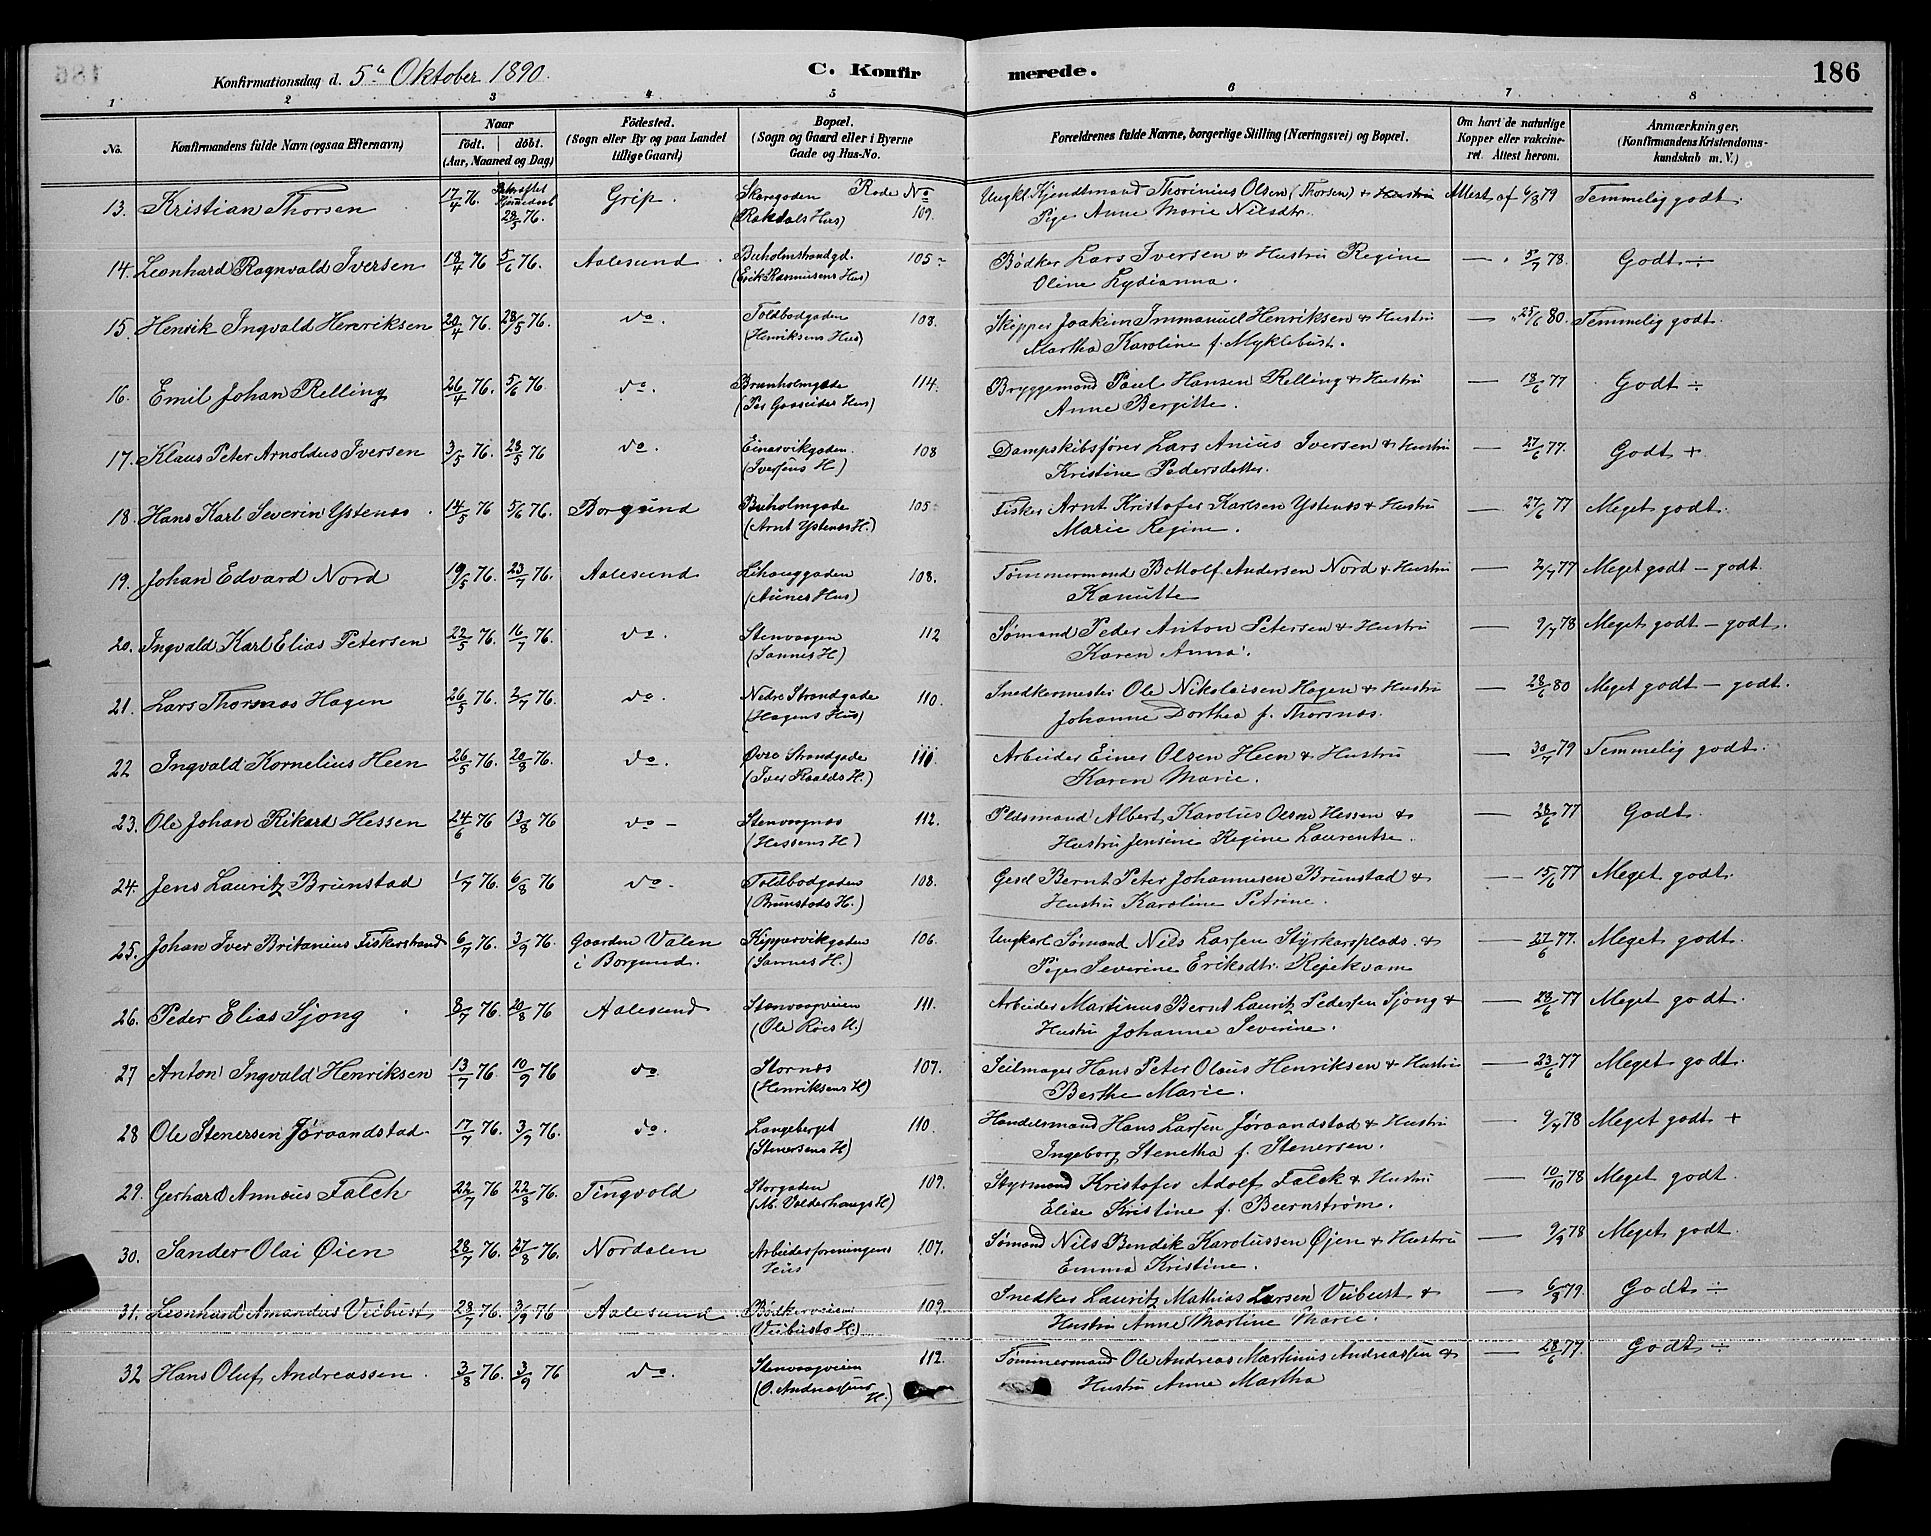 Konfirmationsdag d. 5te Oktober 1890.
C. Konfirmerede.
186
1 2 3 4 5 6 7 8
No.
Konfirmandens fulde Navn (ogsaa Efternavn)
Naar
födt. döbt.
(Aar, Maaned og Dag)
Födested.
(Sogn eller By og paa Landet
tillige Gaard)
Bopæl.
(Sogn og Gaard eller i Byerne
Gade og Hus-No.
Forældrenes fulde Navne, borgerlige Stilling (Næringsvei) og Bopæl.
Om havt de naturlige
Kopper eller vakcine-
ret. Attest herom.
Anmærkninger.
(Konfirmandens Kristendoms-
kundskab m. V.)
Rode No
13. Kristian Thorsen 17/4 76. 28/5 76. Grip. Skaregaden 109. Ungkl. Thorinius Olsen (Thorsen) & Hustru Attest af 6/8 79 Temmelig godt.
(Rakdals Hus) Pige Anne Marie Nilsdtr.
14. Leonhard Ragnvald Iversen 18/4 76 5/6 76. Aalesund Buholmstrandgd. 105 Bødker Lars Iversen & Hustru Regine — 5/7 78. Godt ÷
(Erik Rasmusens Hus) Oline Lydianna.
15. Henrik Ingvald Henriksen 20/4 76. 28/5 76. do. Toldbodgaden 108. Skipper Joakim Immanuel Henriksen & Hustru — 25/6 80. Temmelig godt.
(Henriksens Hus) Martha Karoline f. Myklebust.
16. Emil Johan Relling 26/4 76. 5/6 76. do. Brunholmgade 114. Bryggemand Paul Hansen Relling & Hustru — 18/6 77 Godt ÷
(Per Gaaseides Hus) Anne Bergitte.
17. Klaus Peter Arnoldus Iversen 3/5 76. 28/5 76 do. Einarvikgaden. 108 Dampskibsfører Lars Anius Iversen & Hustru — 27/6 77. Godt +
(Iversens H) Kristine Pedersdatter.
18. Hans Karl Severin Ystenes 14/5 76 5/6 76. Borgund Buholmgade 105 Fisker Arnt Kristofer Karlsen Ystenes & Hustru — 27/6 77 Meget godt.
(Arnt Ystenes H.) Marie Regine.
19. Johan Edvard Nord 19/5 76. 23/7 76. Aalesund Lihauggaden 108. Tømmermand Bottolf Andersen Nord & Hustru — 2/7 77 Meget godt – godt.
(Aunes Hus) Kanutte
20. Ingvald Karl Elias Petersen 22/5 76. 16/7 76. do. Stenvaagen 112 Sømand Peder Anton Petersen & Hustru — 9/7 78 Meget godt – godt.
(Sannes H) Karen Anna.
21. Lars Thorsnes Hagen 26/5 76. 2/7 76. do. Nedre Strandgade 110. Snedkermester Ole Nikolaisen Hagen & Hustru — 28/6 80 Meget godt – godt.
(Hagens Hus) Johanne Dorthea f. Thorsnes.
22 Ingvald Kornelius Heen 26/5 76. 20/8 76. do. Øvre Strandgade 111. Arbeider Einer Olsen Heen & Hustru — 30/7 79 Temmelig godt.
(Iver Raalds H.) Karen Marie.
23. Ole Johan Rikard Hessen 24/6 76 13/8 76 do – Stenvaagnes 112. Albert Karolus Olsen Hessen & — 28/6 77 Godt.
(Hessens H) Hustru Jensine Regine Laurentse.
24. Jens Lauritz Brunstad 1/7 76. 6/8 76 do. Toldbodgaden 108. Gesel Bernt Peter Johannesen Brunstad & — 15/6 77 Meget godt.
(Brunstads H.) Hustru Karoline Petrine.
25. Johan Iver Britanius Fiskerstrand 6/7 76. 3/9 76. Gaarden Valen Kippervikgaden 106. Ungkarl Sømand Nils Larsen Styrkarsplads & — 27/6 77. Meget godt.
i Borgund. (Sannes H.) Pige Severine Eriksdtr. Rejekvam
26. Peder Elias Sjong 8/7 76. 20/8 76 Aalesund Stenvaagveien 111. Arbeider Martinus Bernt Lauritz Pedersen Sjong & — 28/6 77 Meget godt.
(Ole Röes H.) Hustru Johanne Severine.
27 Anton Ingvald Henriksen 13/7 76. 10/9 76 do Stornes 107. Seilmager Hans Peter Olaus Henriksen & Hustru — 23/6 77 Meget godt.
(Henriksens H) Berthe Marie.
28 Ole Stenersen Jøraandstad 17/7 76. 3/9 76. do. Langeberget 110. Handelsmand Hans Larsen Jøraandstad & Hustru — 9/7 78 Meget godt +
(Stenersens H) Ingeborg Stenetha f. Stenersen.
29. Gerhard Annæus Falck 22/7 76 22/8 76. Tingvold Storgaden 109. Styrmand Kristofer Adolf Falck & Hustru — 10/10 78 Meget godt.
(M. Valderhaugs H) Elise Kristine f. Beernstrøm.
30. Sander Olai Øien 28/7 76. 27/8 76. Nordalen Arbeiderforeningens 107. Sømand Nils Bendik Karolussen Øjen & Hustru — 9/9 78 Meget godt.
Hus Emma Kristine.
31. Leonhard Amandus Viibust 28/7 76. 3/9 76 Aalesund Bødkerveien 109. Snedker Lauritz Mathias Larsen Viibust & — 6/8 79. Godt ÷
(Viibusts H) Hustru Anne Martine Marie.
32 Hans Oluf Andreassen 3/8 76. 3/9 76 do. Stenvaagveien 112. Tømmermand Ole Andreas Martinus Andreassen & — 28/6 77. Godt ÷
(O. Andreassens H.) Hustru Anne Martha